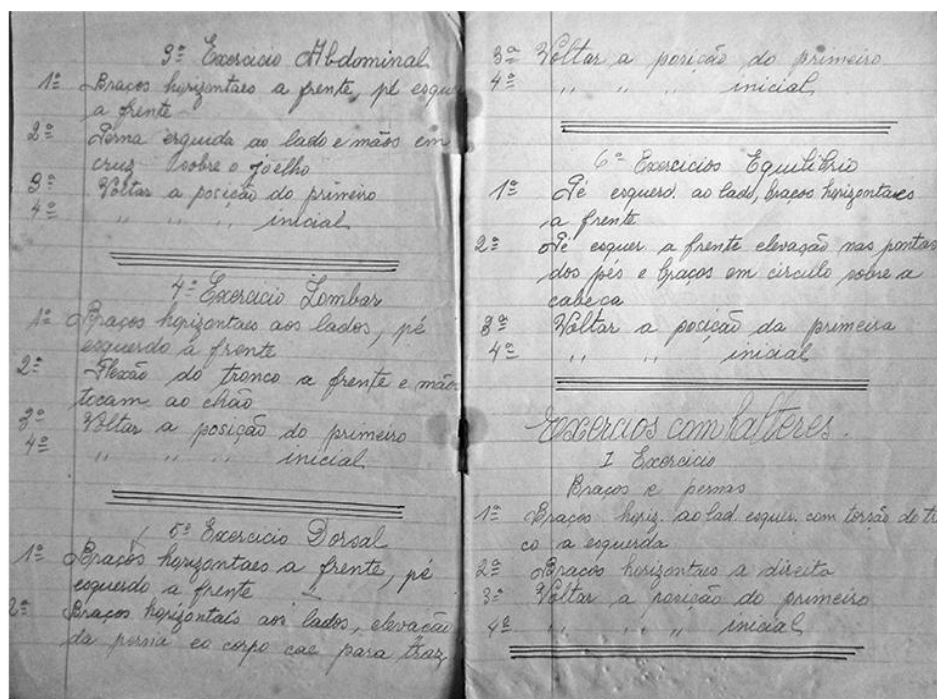 3º Exercicio Abdominal
1º Braços horizontaes a frente, pé esque
a frente
2º Perna erguida ao lado e mãos em
cruz sobre o joelho
3º Voltar a posição do primeiro
4º " " " inicial
4º Exercicio Lombar
1º Braços horizontaes aos lados, pé
esquerdo a frente
2º Flexão do tronco a frente e mão
tocam ao chão
3º Voltar a posição do primeiro
4º " " " inicial
5º Exercicio Dorsal
1º Braços horizontaes a frente, pé
esquerdo a frente
2º Braços horizontais aos lados, elevação
da perna eo corpo cae para traz
3ª Voltar a posição do primeiro
4ª " " " inicial
6º Exercicios Equilibrio
1º Pé esquerd. ao lad, braços horizontaes
a frente
2º Pé esquer. a frente elevação nas pontas
dos pés e braços em circulo sobre a
cabeca
3ª Voltar a posição da primeira
4º " " inicial
Exercios com halteres.
I Exercicio
Braços e pernas
1ª Braços horiz. ao lad. esquer. com torsão do tr
co a esquerda
2ª Bracos horizontais a direita
3º Voltar a posição do primeiro
4º " " " inicial